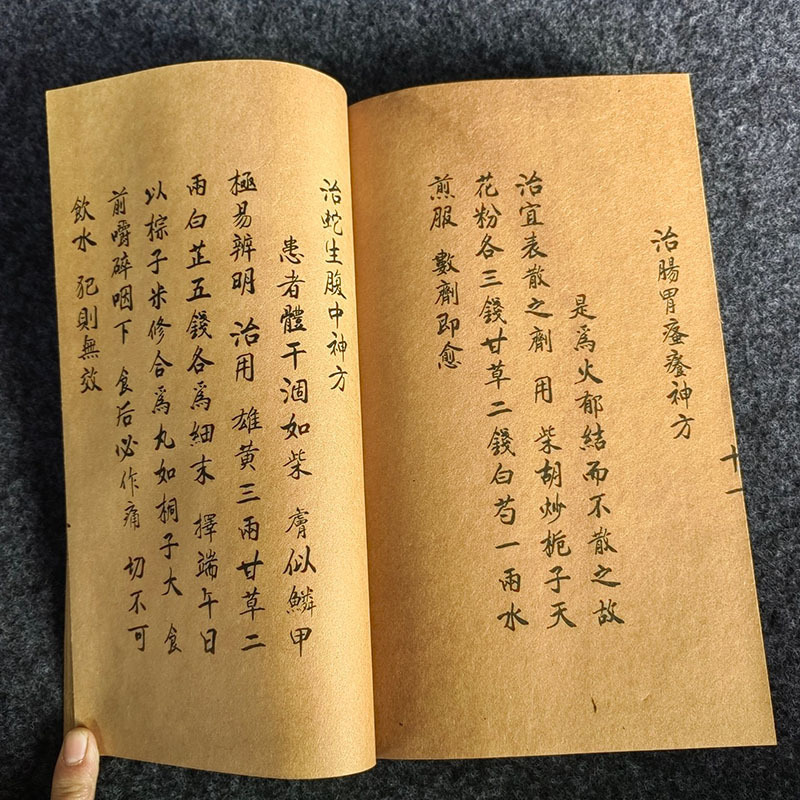 治腸胃瘙癢神方
是爲火郁結而不散之故
治宜表散之劑 用 柴胡炒梔子天
花粉各三錢甘草二錢白芍一兩水
煎服 數劑即愈
十一
治蛇生腹中神方
患者體干涸如柴 膚似鱗甲
極易辨明 治用 雄黃三兩甘草二
兩白芷五錢各爲細末 擇端午日
以棕子米修合爲丸如桐子大 食
前嚼碎咽下 食后必作痛 切不可
飲水 犯則無效